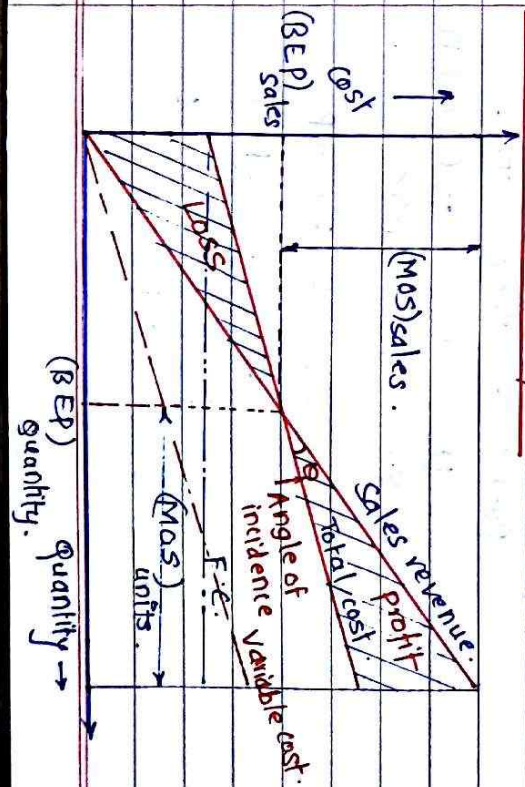 cost →
(BEP)
sales
(MOS) sales.
Loss
Sales revenue.
profit
Total cost.
θ
Angle of
incidence
variable cost.
F.C.
(MOS)
units.
(BEP)
quantity.
quantity →